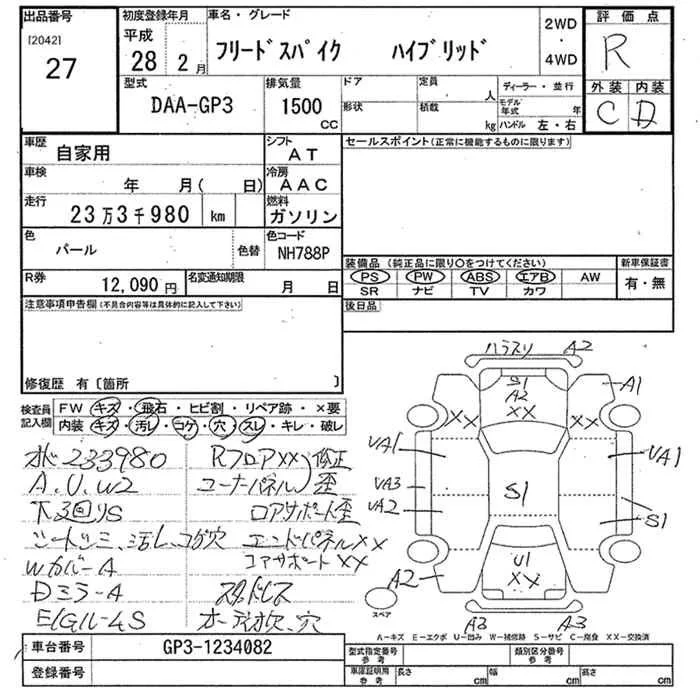 出品番号
[2042]
27
初度登録年月
平成
28 2月
車名・グレード
フリードスパイク ハイブリッド
2WD
・
4WD
評価点
R
外装 内装
C D
型式
DAA-GP3
排気量
1500
CC
ドア
形状
定員
人
積載
kg
ディーラー・並行
モデル年式 年
ハンドル 左・右
車歴
自家用
シフト
AT
車検
年 月( 日)
冷房
AAC
走行
23万3千980 km
燃料
ガソリン
色
パール
色替
色コード
NH788P
R券
12,090円
名変通知期限
月 日
セールスポイント(正常に機能するものに限ります)
装備品(純正品に限り○をつけてください)
PS PW ABS エアB AW
SR ナビ TV カワ
新車保証書
有・無
後日品
注意事項申告欄(不具合内容等は具体的に記入して下さい)
修復歴 有〔箇所 〕
検査員記入欄
FW キズ・飛石・ヒビ割・リペア跡・×要
内装 キズ・汚レ・コゲ・穴・スレ・キレ・破レ
233980
A.U.W2
下廻りS
シートシミ、汚レ、コゲ穴
Wカバー A
Dミラー A
Rフロア××
修正
コーナパネル
歪
ロアサポート歪
エンドパネル××
コアサポート××
スタッドレス
穴
A2
S1
A2
××
A1
××
××
UA1
UA3
UA2
S1
UA1
S1
U1
××
A2
A3
A3
スペア
A-キズ E-エクボ U-凹み W-補修跡 S-サビ C-腐食 ××-交換済
車台番号
GP3-1234082
登録番号
型式指定番号
参考
類別区分番号
参考
車庫証明用
参考
長さ cm
幅 cm
高さ cm